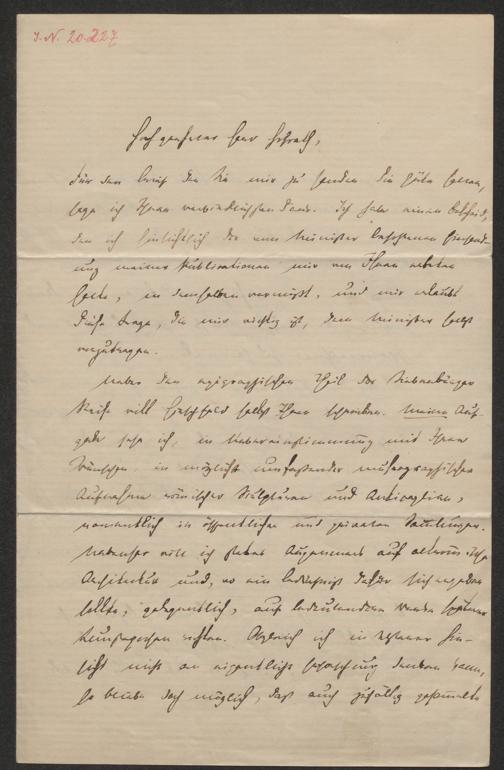 I.N. 20.227
Hochgeehrter Herr Hofrath,
Für den Brief den Sie mir zu senden die Güte hatten,
sage ich Ihnen verbindlichsten Dank. Ich habe einen Bescheid,
den ich hinsichtlich der vom Minister befohlenen
ung meiner Publicationen mir von Ihnen erbeten
hatte, in demselben vermißt, und mir erlaubt
diese Frage, die mir wichtig ist, dem Minister selbst
vorzutragen.
Ueber den epigraphischen Theil der Siebenbürger
Reise will Hirschfeld selbst Ihnen schreiben. Meine Auf-
gabe sehe ich, in Uebereinstimmung mit Ihren
Wünschen, in möglichst umfassender museographischer
Aufnahme römischer Sculpturen und Anticaglien,
namentlich in öffentlichen und privaten Sammlungen.
Nebenher will ich stetes Augenmerk auf
Architektur und, wo ein Bedürfniß dafür sich ergeben
sollte, gelegentlich, auf bedeutendere Werke späterer
Kunstepochen richten. Obgleich ich in letzterer Hin-
sicht nicht an eigentliche Forschung denken kann,
so bleibt doch möglich, daß auch zufällig gesammelte